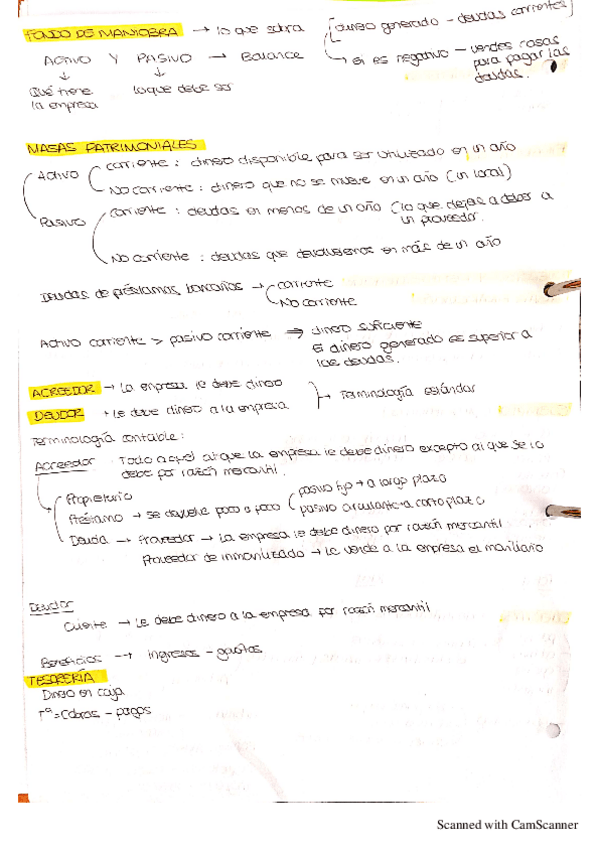 FONDO DE MANIOBRA → lo que sobra
(dinero generado - deudas corrientes)
si es negativo - vendes cosas para pagar las deudas.
ACTIVO Y PASIVO → Balance
↓ ↓
Qué tiene la empresa
lo que debe ser
MASAS PATRIMONIALES
Activo
corriente : dinero disponible para ser utilizado en un año
No corriente : dinero que no se mueve en un año (un local)
Pasivo
corriente : deudas en menos de un año (lo que dejas a deber a un proveedor.
No corriente : deudas que devolvemos en más de un año
Deudas de préstamos bancarios → corriente
No corriente
Activo corriente > pasivo corriente ⇒ dinero suficiente
El dinero generado es superior a las deudas.
ACREEDOR → La empresa le debe dinero
DEUDOR → Le debe dinero a la empresa
→ Terminología estándar
Terminología contable :
Acreedor Todo aquel al que la empresa le debe dinero excepto al que se lo debe por razón mercantil.
Propietario
Préstamo → se devuelve poco a poco
pasivo fijo → a largo plazo
pasivo circulante → a corto plazo
Deuda → Proveedor → La empresa le debe dinero por razón mercantil
Proveedor de inmovilizado → Le vende a la empresa el mobiliario
Deudor
Cliente → Le debe dinero a la empresa por razón mercantil
Beneficios → ingresos - gastos
TESORERÍA
Dinero en caja
Tª = Cobros - pagos
Scanned with CamScanner